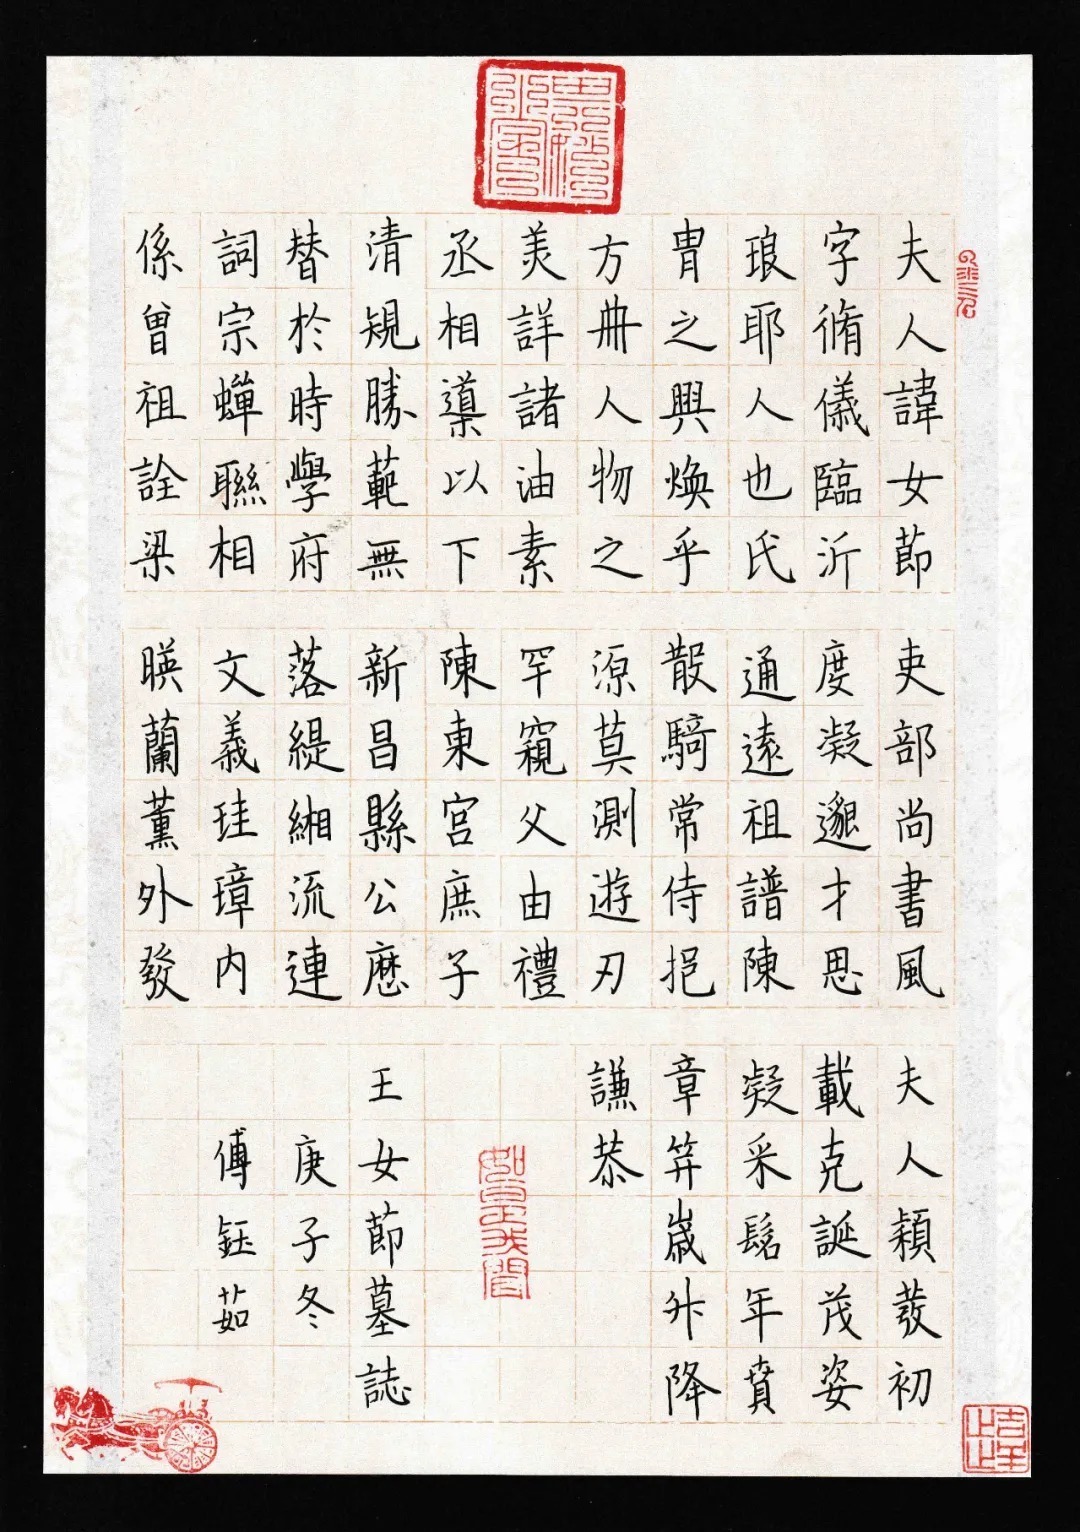 夫人諱女節
字脩儀臨沂
琅耶人也氏
胄之興煥乎
方冊人物之
美詳諸油素
丞相導以下
清規勝範無
替於時學府
詞宗蟬聯相
係曾祖詮梁
吏部尚書風
度凝邈才思
通遠祖譜陳
散騎常侍挹
源莫測遊刃
罕窺父由禮
陳東宮庶子
新昌縣公歷
落緹緗流連
文義珪璋內
暎蘭薰外發
夫人穎發初
載克誕茂姿
凝采髫年賁
章笄歲升降
謙恭
王女節墓誌
庚子冬
傅鈺茹
吉羊止止